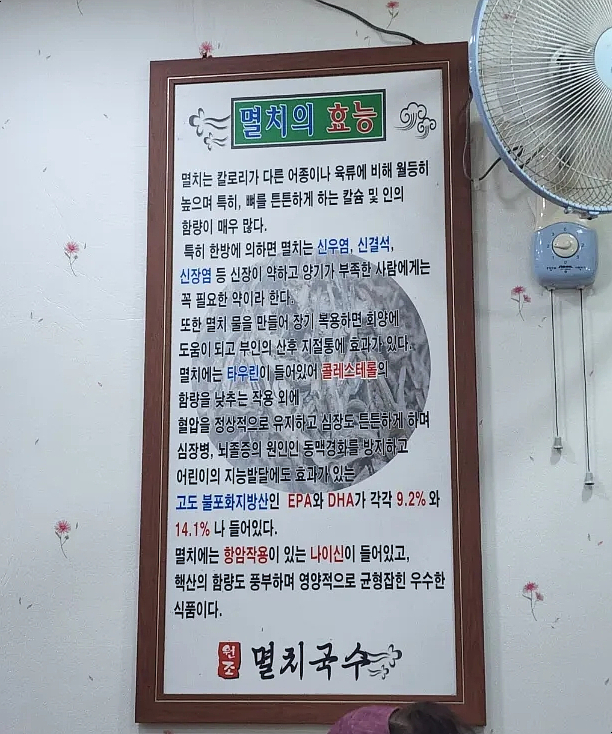 멸치의 효능
멸치는 칼로리가 다른 어종이나 육류에 비해 월등히
높으며 특히, 뼈를 튼튼하게 하는 칼슘 및 인의
함량이 매우 많다.
특히 한방에 의하면 멸치는 신우염, 신결석,
신장염 등 신장이 약하고 양기가 부족한 사람에게는
꼭 필요한 약이라 한다.
또한 멸치 물을 만들어 장기 복용하면 회양에
도움이 되고 부인의 산후 지절통에 효과가 있다.
멸치에는 타우린이 들어있어 콜레스테롤의
함량을 낮추는 작용 외에
혈압을 정상적으로 유지하고 심장도 튼튼하게 하며
심장병, 뇌졸증의 원인인 동맥경화를 방지하고
어린이의 지능발달에도 효과가 있는
고도 불포화지방산인 EPA와 DHA가 각각 9.2% 와
14.1% 나 들어있다.
멸치에는 항암작용이 있는 나이신이 들어있고,
핵산의 함량도 풍부하며 영양적으로 균형잡힌 우수한
식품이다.
원조 멸치국수